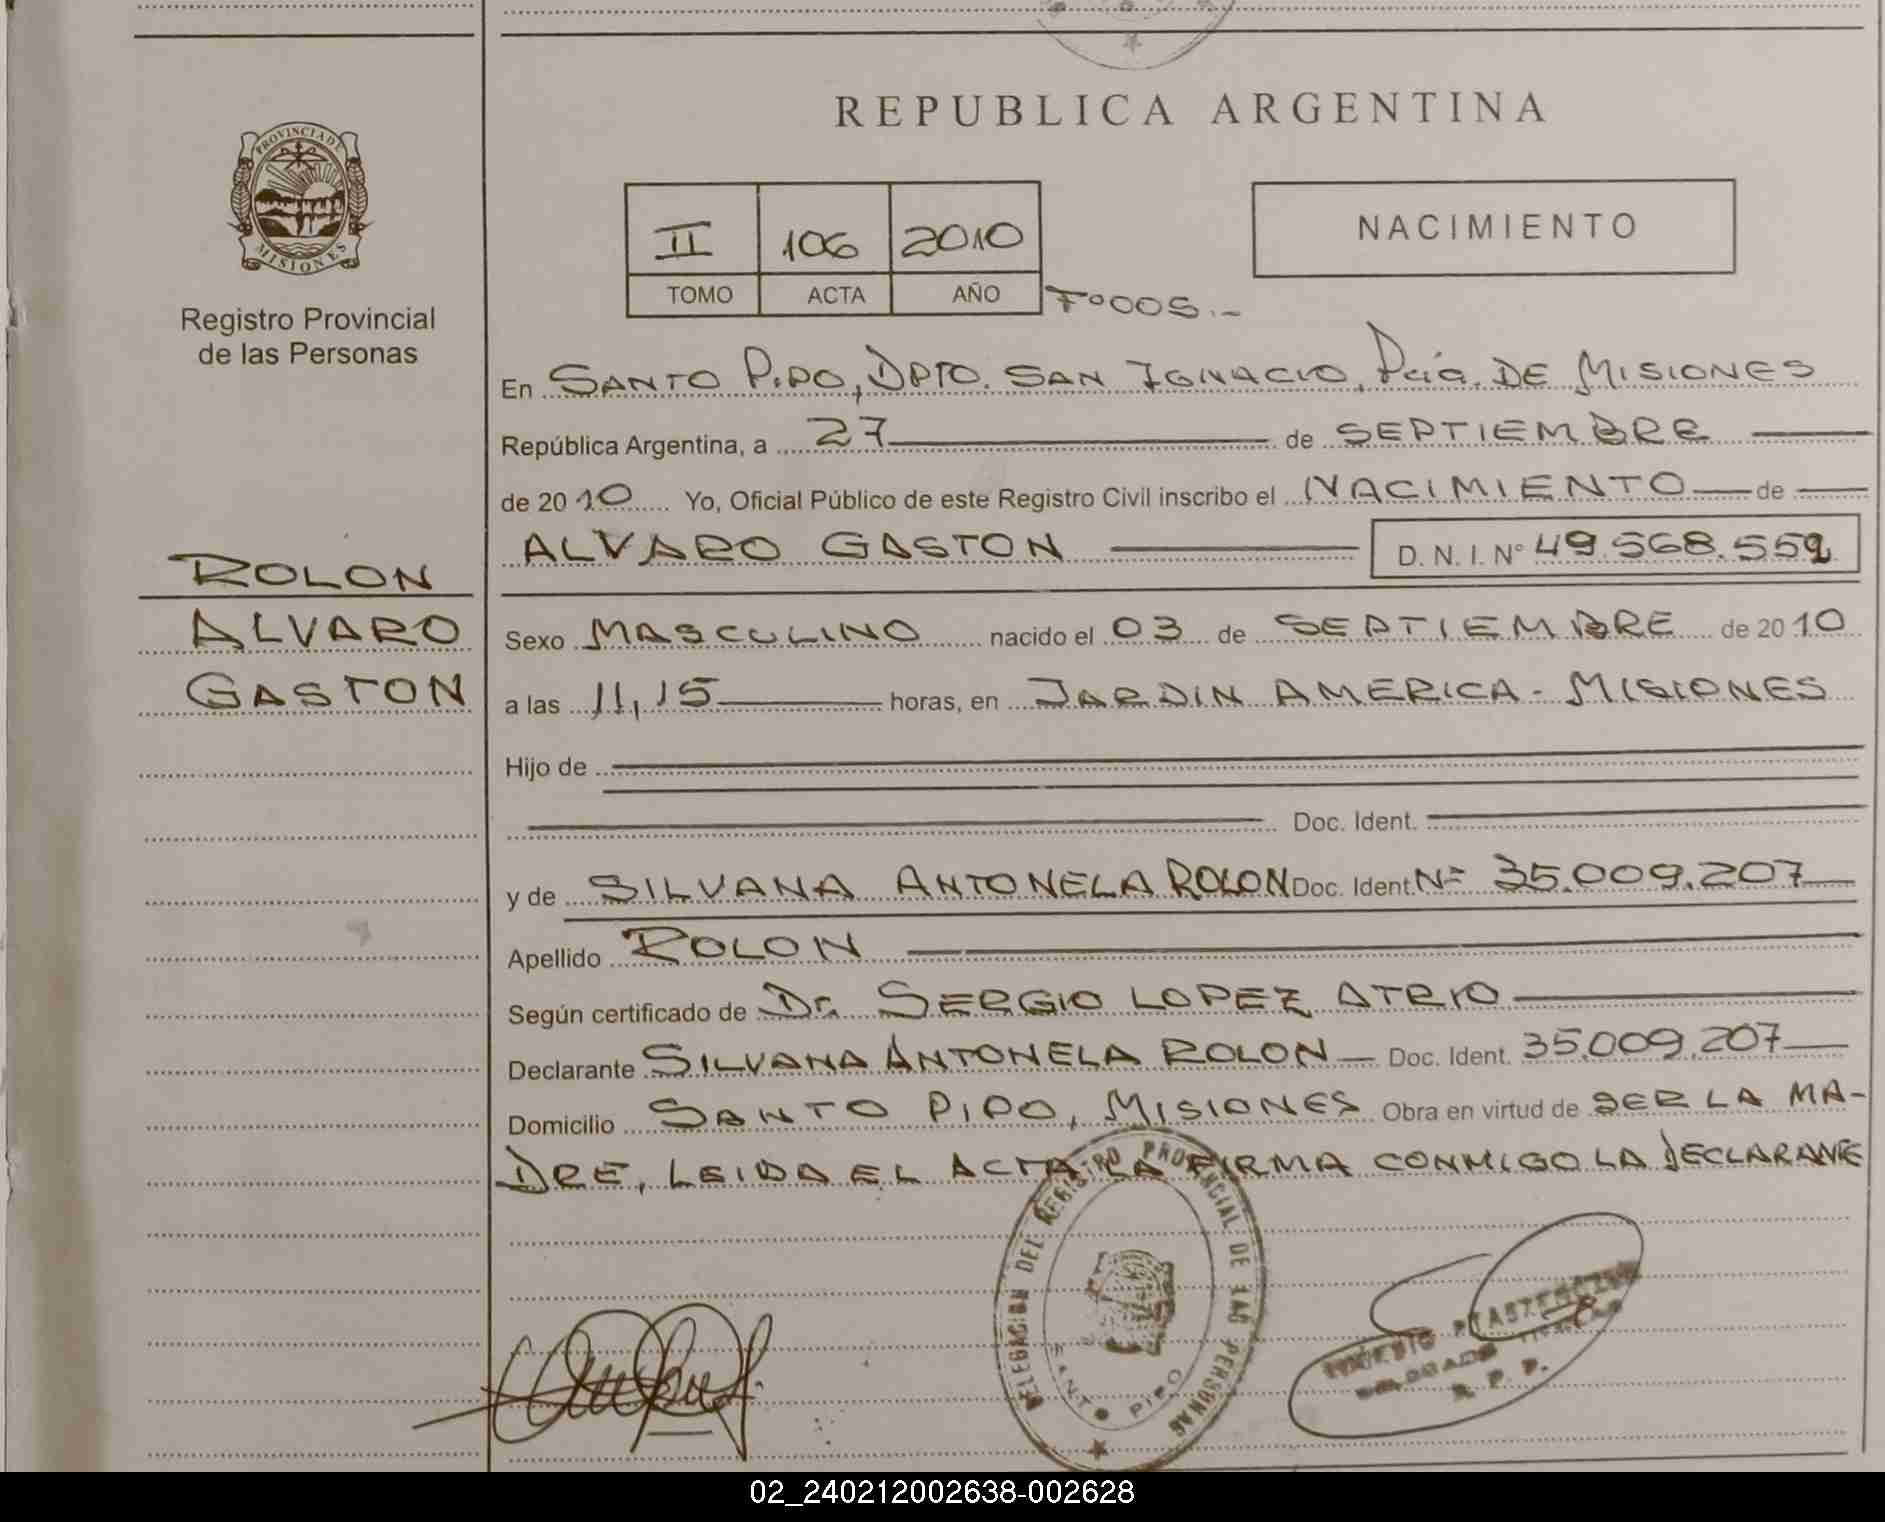 REPUBLICA ARGENTINA
PROVINCIA DE
MISIONES
Registro Provincial
de las Personas
II 106 2010
TOMO ACTA AÑO
Fº005.-
NACIMIENTO
En SANTO PIPO, DPTO. SAN IGNACIO, Pcia. DE MISIONES
República Argentina, a 27 de SEPTIEMBRE
de 2010 Yo, Oficial Público de este Registro Civil inscribo el NACIMIENTO de
ALVARO GASTON D. N. I. Nº 49.568.552
ROLON
ALVARO
GASTON
Sexo MASCULINO nacido el 03 de SEPTIEMBRE de 2010
a las 11,15 horas, en JARDIN AMERICA - MISIONES
Hijo de
Doc. Ident.
y de SILVANA ANTONELA ROLON Doc. Ident. Nº 35.009.207
Apellido ROLON
Según certificado de Dr. SERGIO LOPEZ ATRIO
Declarante SILVANA ANTONELA ROLON Doc. Ident. 35.009.207
Domicilio SANTO PIPO, MISIONES Obra en virtud de SER LA MA-
DRE, LEIDA EL ACTA LA FIRMA CONMIGO LA DECLARANTE
DELEGACION DEL REGISTRO PROVINCIAL DE LAS PERSONAS
SANTO PIPO
R. P. P.
02_240212002638-002628